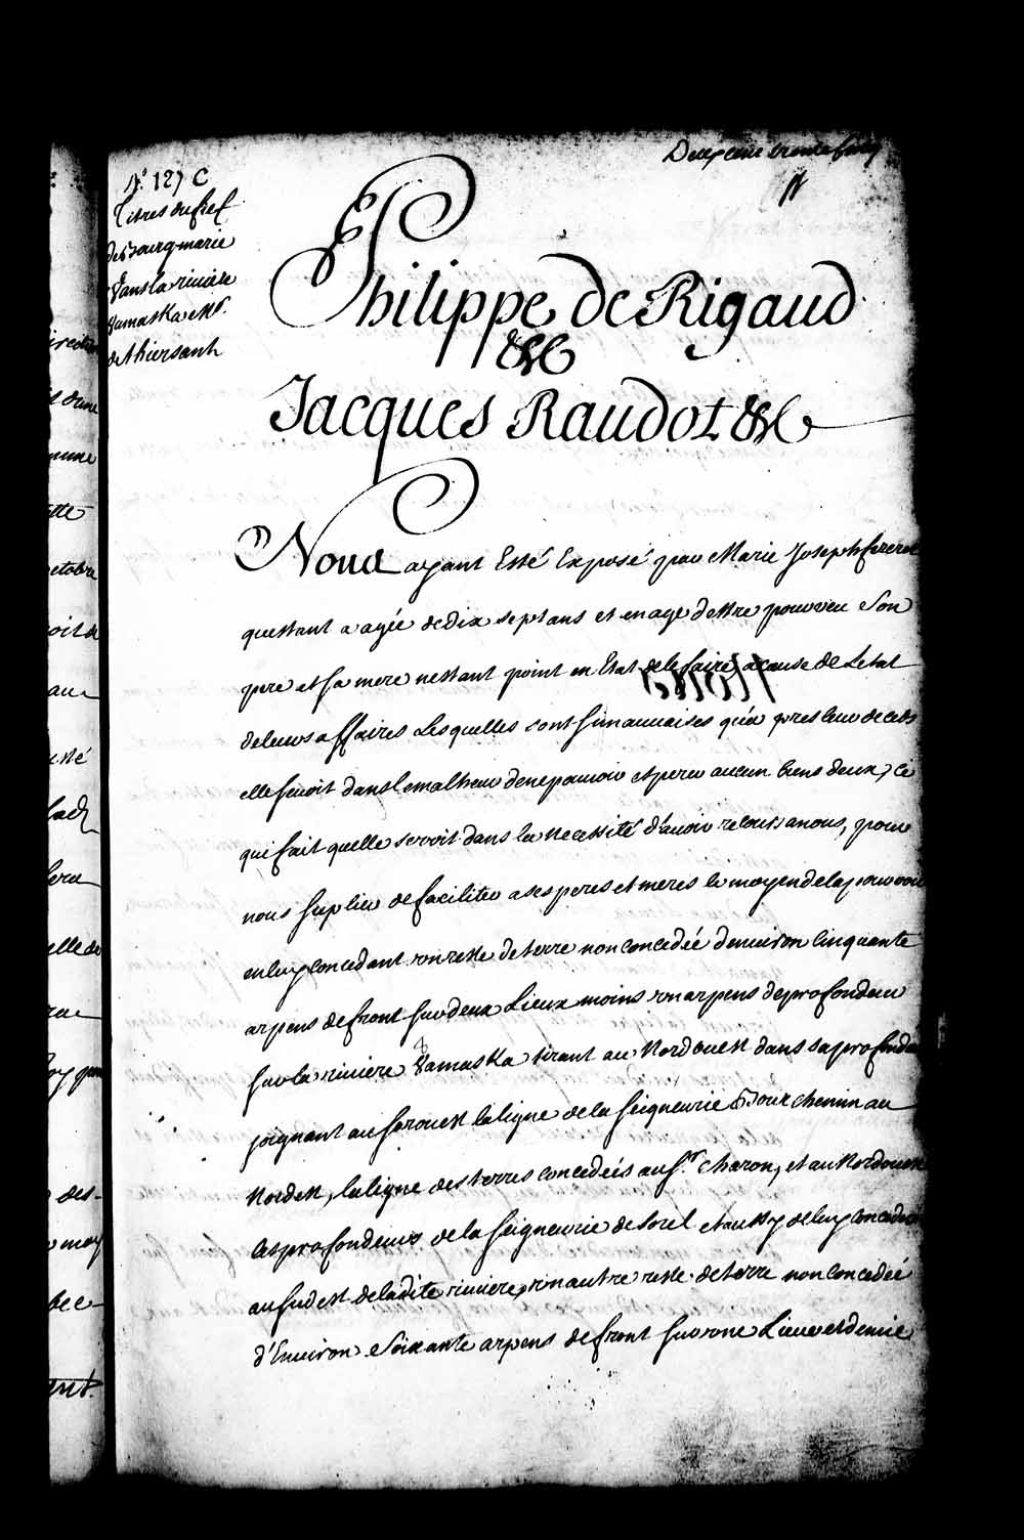 Deux cent trente cinq
N.º 127 C
Titres du fief
de Bourgmarie
dans la riuiere
yamaska Mr.
de thiersant
Philippe de Rigaud
&c
Jacques Raudot &c
Nous ayant Esté Exposé par Marie Joseph fezeret
questant aagée de dix sept ans et en age destre pourveue Son
pere et sa mere nestant point en Etat de le faire acause de Letat
de leurs affaires Lesquelles sont sy mauuaises qu'a pres leur deceds
elle seroit dans le malheur de ne pouuoir esperer aucun biens deux, ce
qui fait quelle seroit dans la necessité d'auoir recours a nous, pour
nous suplier de faciliter a ses peres et meres le moyen de la pouruoir
en luy concedant un reste de terre non concedée denuiron cinquante
arpens de front sur deux Lieux moins un arpens de profondeur
sur la riuiere yamaska tirant au Nordouest dans sa profondeur
joignant au sorouest la ligne de la seigneurie Bourchemin au
Nordest, la ligne des terres concedeés au Sr. charon, et au Nordouest
les profondeurs de la seigneurie de Sorel et aussy de luy Conceder
au sudest de ladite riuiere, un autre reste de terre non Concedée
d'Enuiron Soixante arpens de front sur une Lieue et demie